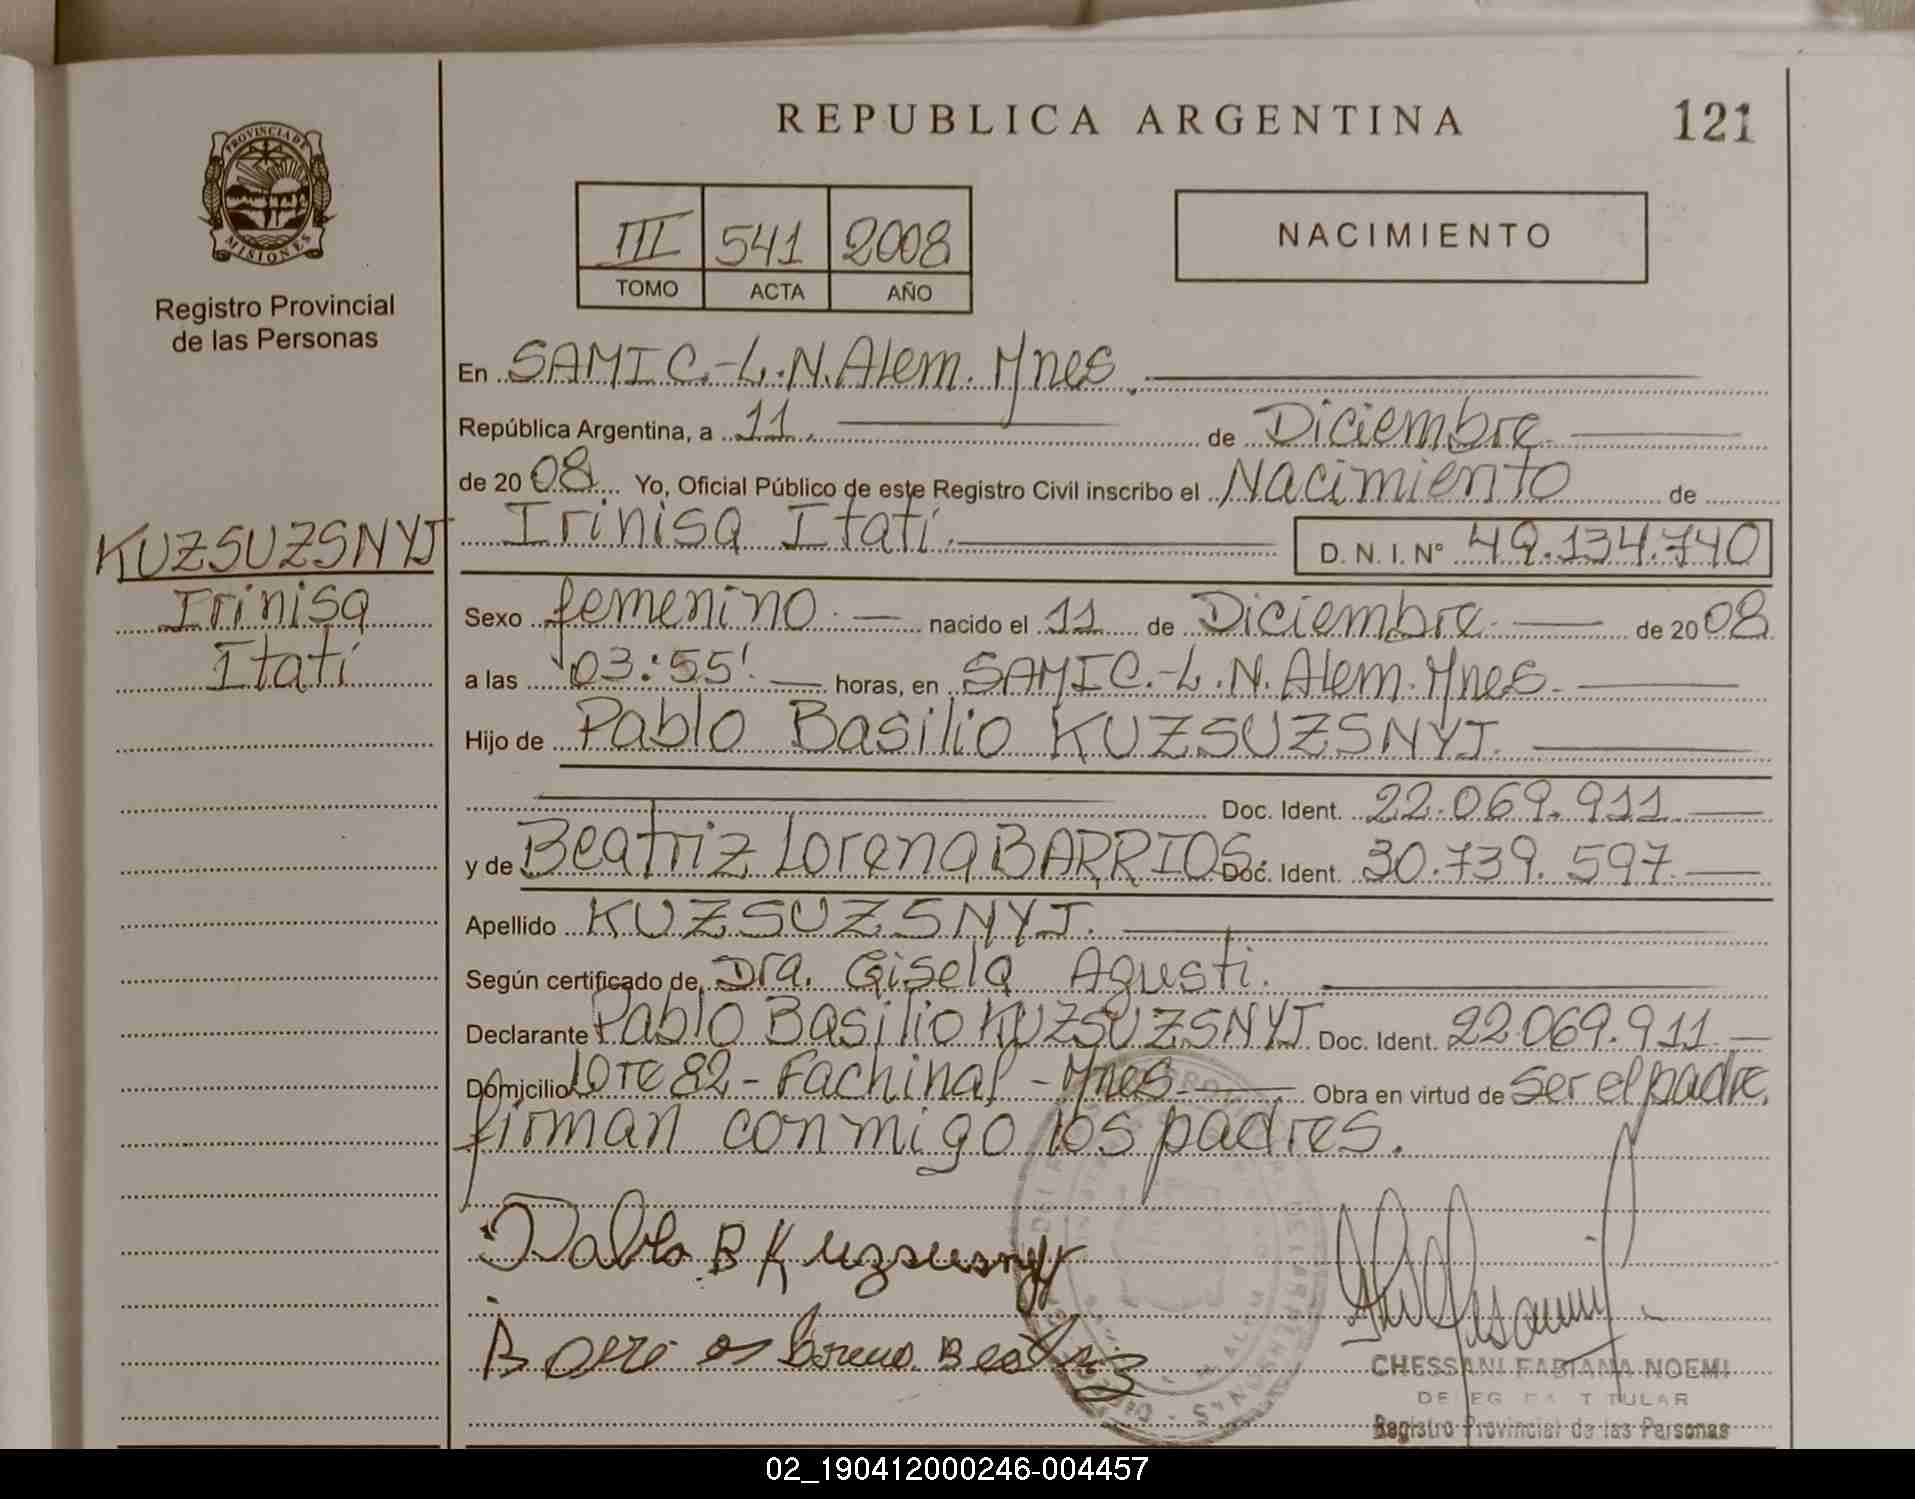 REPUBLICA ARGENTINA
121
PROVINCIA DE
MISIONES
Registro Provincial
de las Personas
III 541 2008
TOMO ACTA AÑO
NACIMIENTO
En SAMIC.-L.N.Alem.Mnes.
República Argentina, a 11. de Diciembre
de 2008 Yo, Oficial Público de este Registro Civil inscribo el Nacimiento de
KUZSUZSNYJ
Irinisa
Itatí
Irinisa Itatí. D. N. I. Nº 49.134.740
Sexo femenino. nacido el 11 de Diciembre de 2008
a las 03:55' horas, en SAMIC.-L.N.Alem.Mnes.
Hijo de Pablo Basilio KUZSUZSNYJ.
Doc. Ident. 22.069.911
y de Beatriz Lorena BARRIOS. Doc. Ident. 30.739.597
Apellido KUZSUZSNYJ.
Según certificado de Dra. Gisela Agusti.
Declarante Pablo Basilio KUZSUZSNYJ Doc. Ident. 22.069.911
Domicilio Lote 82 - Fachinal - Mnes. Obra en virtud de ser el padre,
firman conmigo los padres.
Pablo B Kuzsusnyj
Barrios Lorena Beatriz
CHESSANI FABIANA NOEMI
TITULAR
Registro Provincial de las Personas
02_190412000246-004457